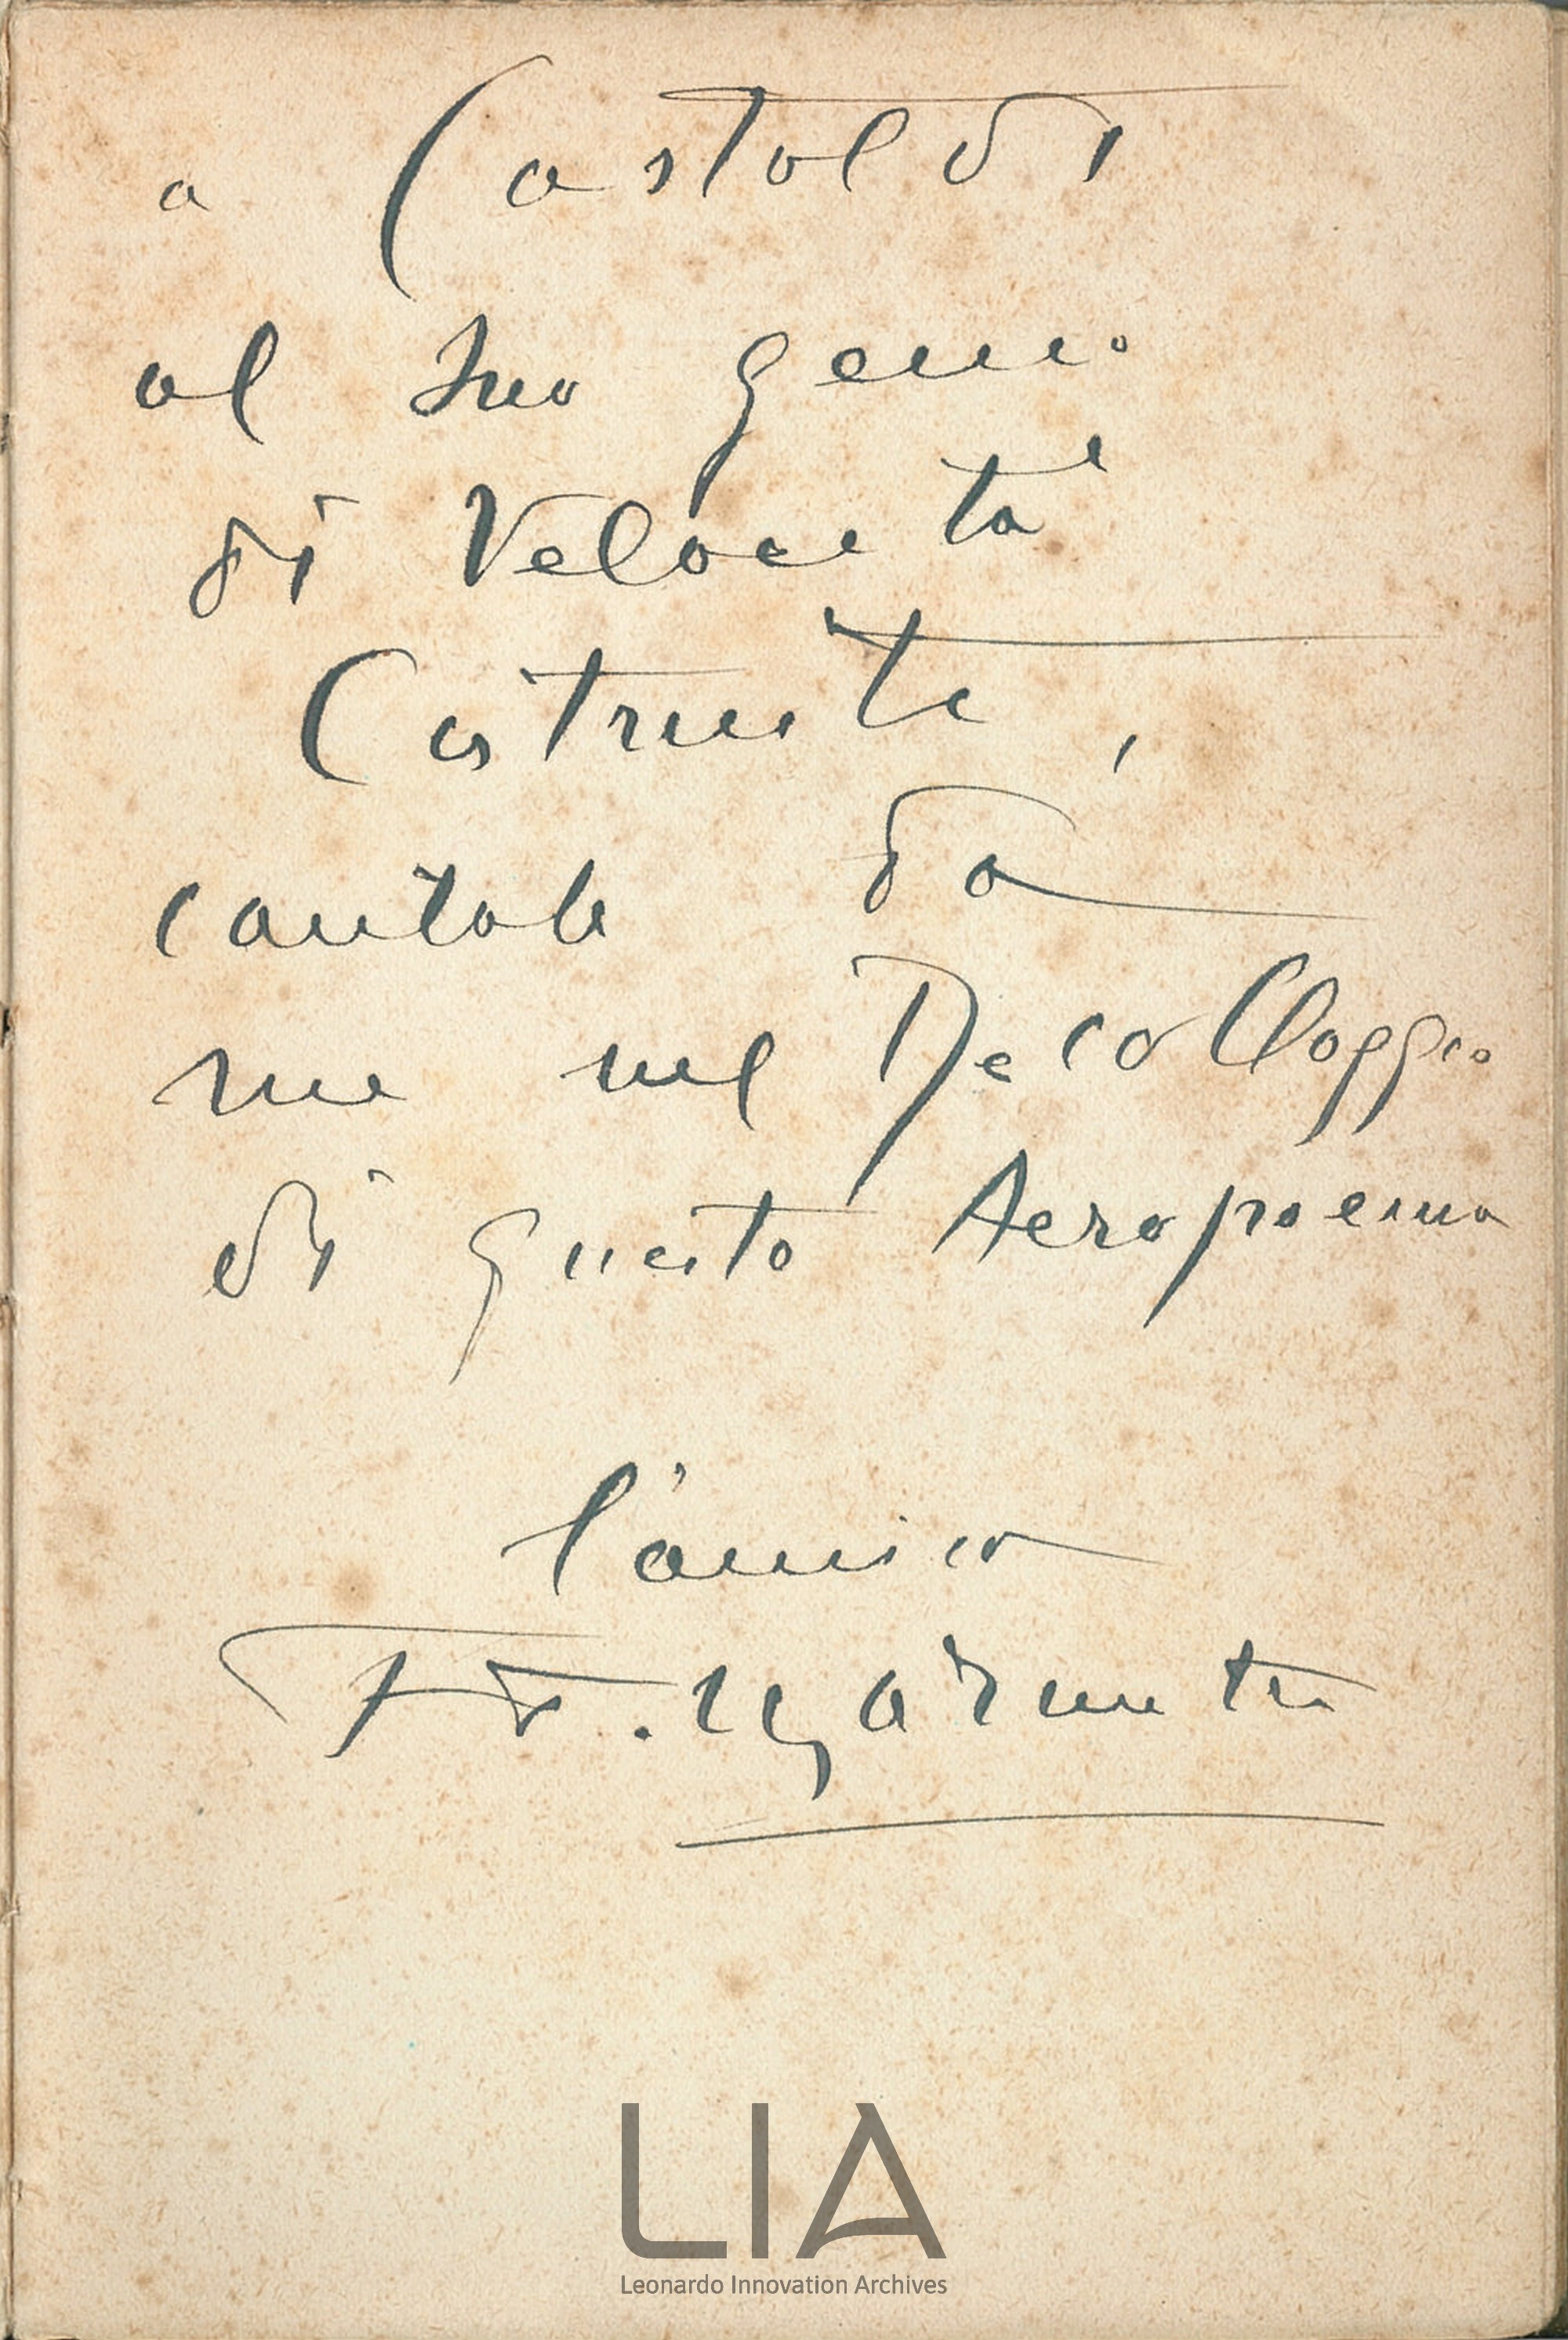 a Castoldi
al suo genio
di Velocità
Costruite,
cantate da
me nel Decollaggio
di questo Aeropoema
l'amico
F. T. Marinetti
LIA
Leonardo Innovation Archives